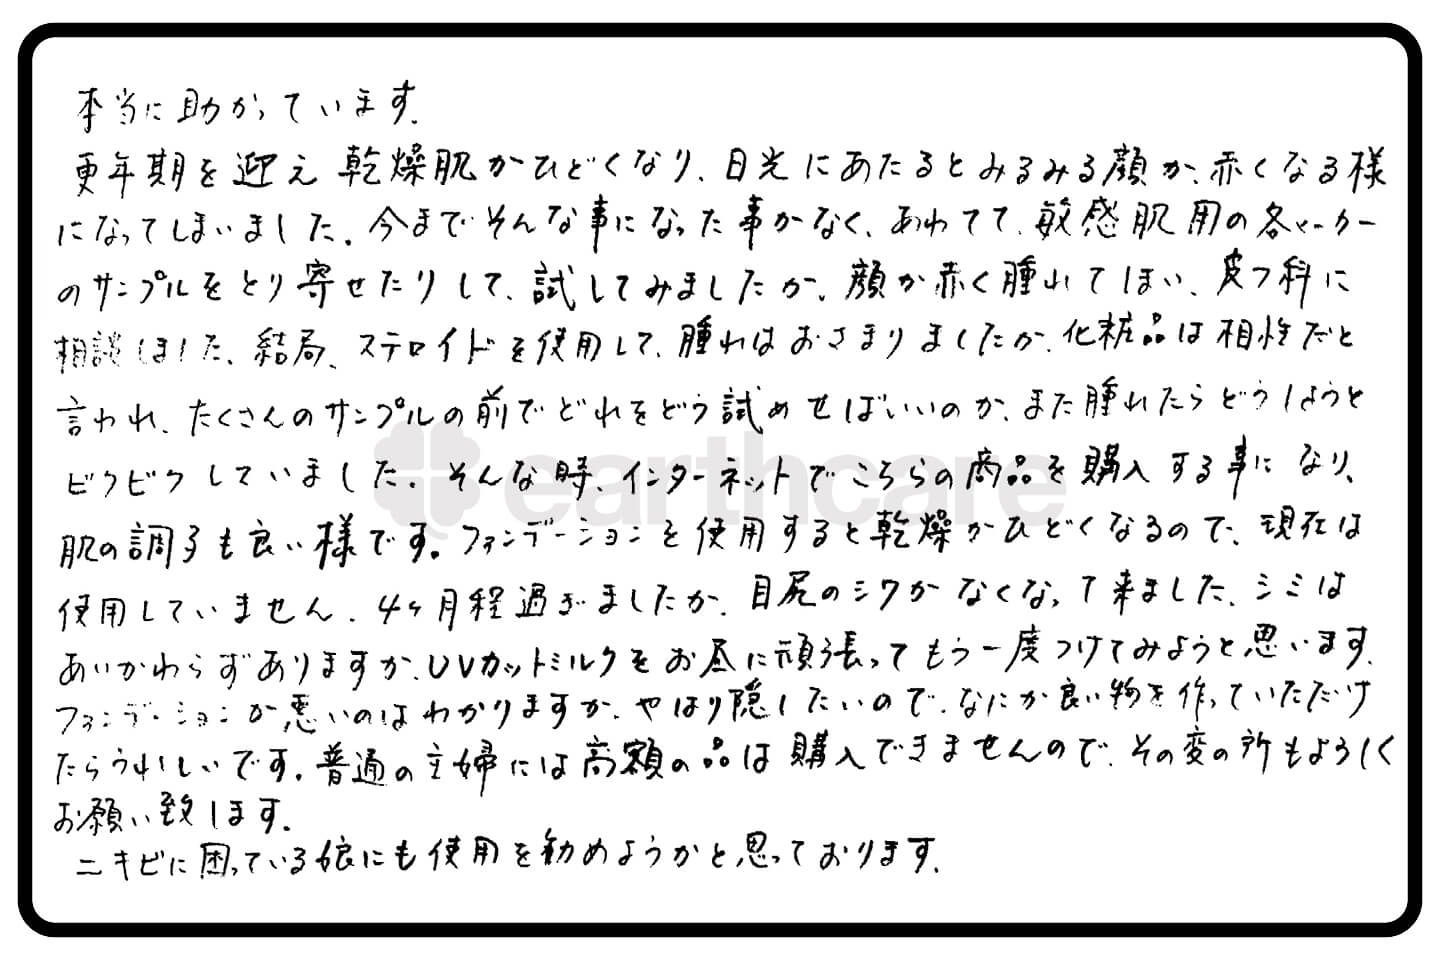 本当に助かっています。
更年期を迎え乾燥肌がひどくなり、日光にあたるとみるみる顔が、赤くなる様
になってしまいました。今までそんな事になった事がなく、あわてて、敏感肌用の各メーカー
のサンプルをとり寄せたりして、試してみましたが、顔が赤く腫れてしまい、皮フ科に
相談しました。結局、ステロイドを使用して、腫れはおさまりましたが、化粧品は相性だと
言われ、たくさんのサンプルの前でどれをどう試めせばいいのか、また腫れたらどうしようと
ビクビクしていました。そんな時、インターネットでこちらの商品を購入する事になり、
earthcare
肌の調子も良い様です。ファンデーションを使用すると乾燥がひどくなるので、現在は
使用していません。4ヶ月程過ぎましたが、目尻のシワがなくなって来ました。シミは
あいかわらずありますが、UVカットミルクをお昼に頑張ってもう一度つけてみようと思います。
ファンデーションが悪いのはわかりますが、やはり隠したいので、なにか良い物を作っていただけ
たらうれしいです。普通の主婦には高額の品は購入できませんので、その変の所もよろしく
お願い致します。
ニキビに困っている娘にも使用を勧めようかと思っております。